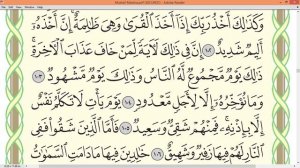 وَكَذَٰلِكَ أَخْذُ رَبِّكَ إِذَا أَخَذَ الْقُرَىٰ وَهِيَ ظَالِمَةٌ إِنَّ أَخْذَهُ
أَلِيمٌ شَدِيدٌ ١٠٢ إِنَّ فِي ذَٰلِكَ لَآيَةً لِمَنْ خَافَ عَذَابَ الْآخِرَةِ
ذَٰلِكَ يَوْمٌ مَجْمُوعٌ لَهُ النَّاسُ وَذَٰلِكَ يَوْمٌ مَشْهُودٌ ١٠٣
وَمَا نُؤَخِّرُهُ إِلَّا لِأَجَلٍ مَعْدُودٍ ١٠٤ يَوْمَ يَأْتِ لَا تَكَلَّمُ نَفْسٌ
إِلَّا بِإِذْنِهِ فَمِنْهُمْ شَقِيٌّ وَسَعِيدٌ ١٠٥ فَأَمَّا الَّذِينَ شَقُوا فَفِي
النَّارِ لَهُمْ فِيهَا زَفِيرٌ وَشَهِيقٌ ١٠٦ خَالِدِينَ فِيهَا مَا دَامَتِ السَّمَٰوَٰتُ